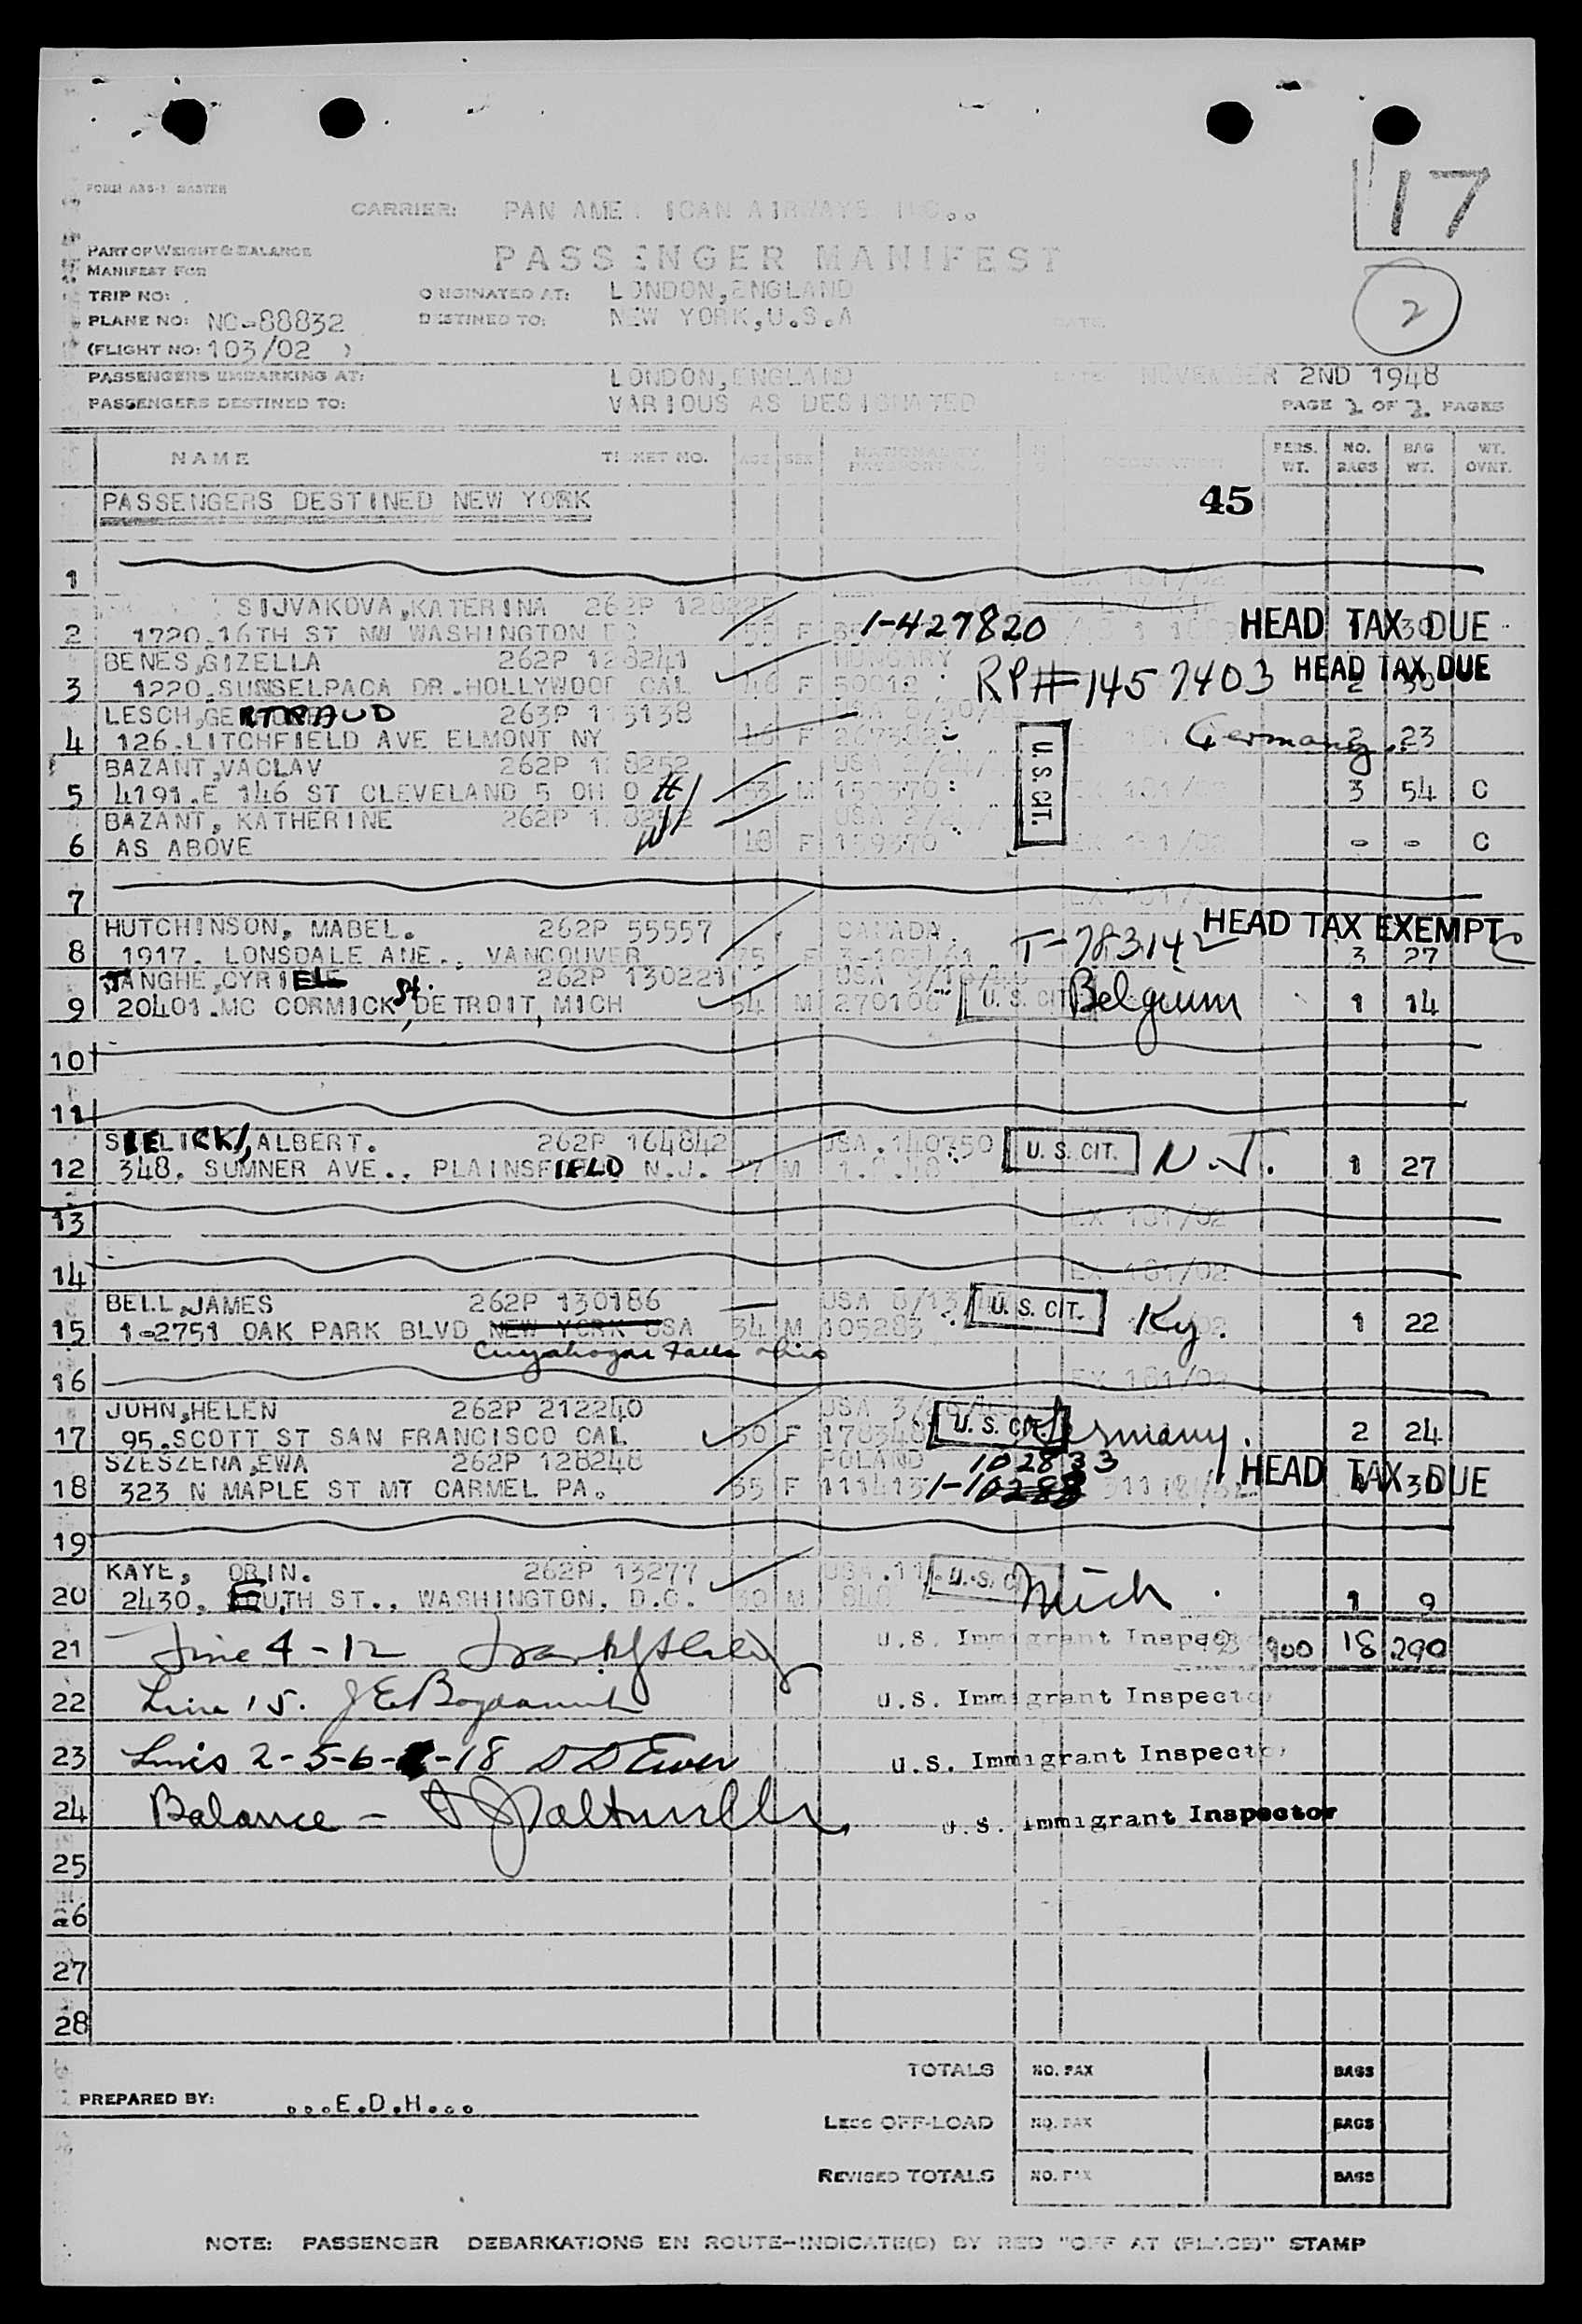 FORM ABS-1 MASTER
17
CARRIER: PAN AMERICAN AIRWAYS INC..
PART OF WEIGHT & BALANCE
PASSENGER MANIFEST
MANIFEST FOR
TRIP NO:
ORIGINATED AT: LONDON,ENGLAND
2
PLANE NO: NC-88832
DESTINED TO: NEW YORK,U.S.A
DATE
(FLIGHT NO: 103/02 )
PASSENGERS EMBARKING AT: LONDON,ENGLAND DATE NOVEMBER 2ND 1948
PASSENGERS DESTINED TO: VARIOUS AS DESIGNATED PAGE 2 OF 2. PAGES
NAME TICKET NO. AGE SEX NATIONALITY PASSPORT NO. OCCUPATION PERS. WT. NO. BAGS BAG WT. WT. OVNT.
PASSENGERS DESTINED NEW YORK 45
1 EX 101/02
SIJVAKOVA,KATERINA 262P 128225
2 1720.16TH ST NW WASHINGTON DC 55 F 1-427820 HEAD TAX DUE 1 30
BENES,GIZELLA 262P 128241 HUNGARY
3 1220.SUNSELPACA DR.HOLLYWOOD CAL 46 F 50012 RP# 1457403 HEAD TAX DUE 2 30
LESCH,GERTRAUD 263P 115138 USA
4 126.LITCHFIELD AVE ELMONT NY F Germany 2 23
BAZANT,VACLAV 262P 128252 USA
5 4191.E 146 ST CLEVELAND 5 OH O H/ 53 M 159370 U.S.CIT. EX 101/02 3 54 C
BAZANT, KATHERINE 262P 128252 USA
6 AS ABOVE W/ 48 F 159370 EX 101/02 - - C
7 EX 101/02
HUTCHINSON, MABEL. 262P 55557 CANADA. HEAD TAX EXEMPT
8 1917. LONSDALE ANE., VANCOUVER 75 F T-783142 3 27 C
JANGHE,CYRIELE 262P 130221 USA
9 20401.MC CORMICK St, DETROIT, MICH 54 M 270106 U. S. CIT Belgium 1 14
10
11
SIELICKI,ALBERT. 262P 164842 USA.140350
12 348. SUMNER AVE., PLAINSFIELD N.J. M U. S. CIT. N.J. 1 27
13 EX 101/02
14 EX 101/02
BELL,JAMES 262P 130186 USA
15 1-2751 OAK PARK BLVD NEW YORK USA 34 M 105283 U. S. CIT. Ky. 1 22
Cuyahogar Falls Ohio
16 EX 101/02
JUHN,HELEN 262P 212240 USA
17 95.SCOTT ST SAN FRANCISCO CAL 30 F 178348 U. S. CIT. Germany. 2 24
SZESZENA,EWA 262P 128248 POLAND 102833
18 323 N MAPLE ST MT CARMEL PA. 55 F 111413 HEAD TAX DUE
19
KAYE, ORIN. 262P 13277 USA.11
20 2430. E UTH ST., WASHINGTON, D.C. 30 M U. S. C Mich 1 9
21 Line 4 - 12 U.S. Immigrant Inspector 900 18 290
22 Line 15. U.S. Immigrant Inspector
23 Lines 2-5-6- -18 U.S. Immigrant Inspector
24 Balance - U.S. Immigrant Inspector
25
26
27
28
TOTALS NO. PAX BAGS
PREPARED BY: ...E.D.H....
LESS OFF-LOAD NO. PAX BAGS
REVISED TOTALS NO. PAX BAGS
NOTE: PASSENGER DEBARKATIONS EN ROUTE—INDICATE(D) BY RED "OFF AT (PLACE)" STAMP